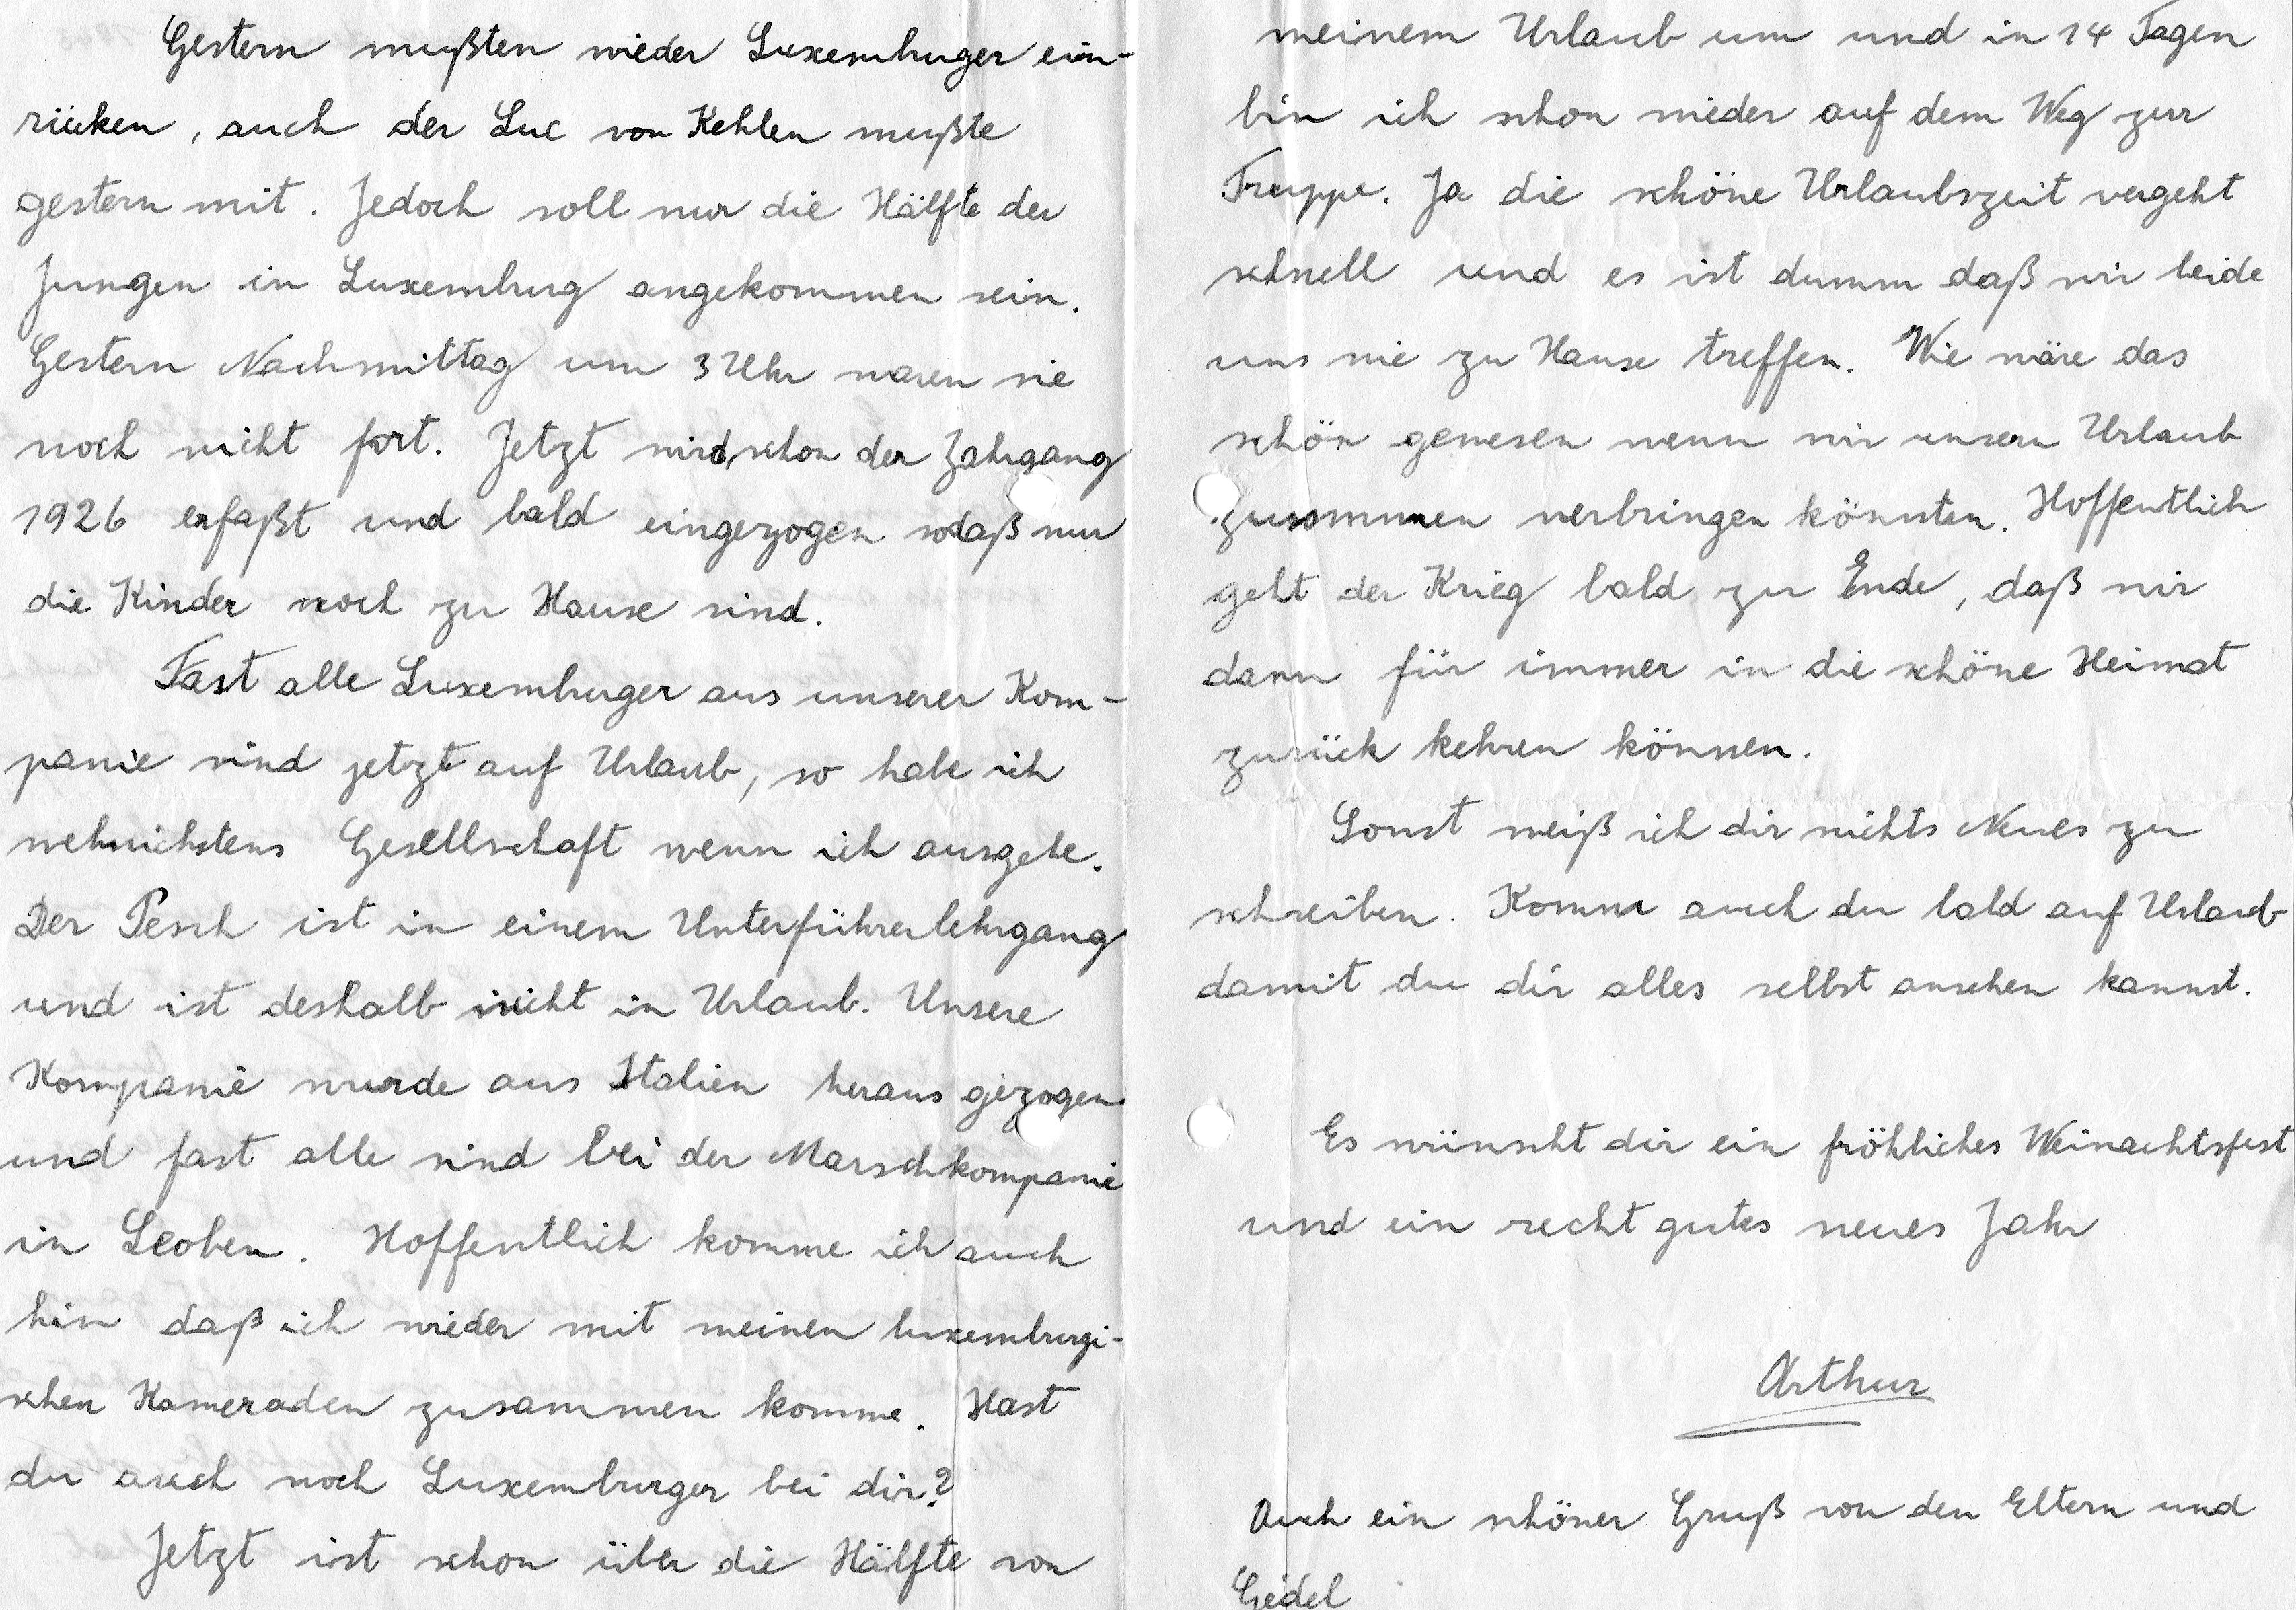 Gestern mußten wieder Luxemburger ein-
rücken, auch der Luc von Kehlen mußte
gestern mit. Jedoch soll nur die Hälfte der
Jungen in Luxemburg angekommen sein.
Gestern Nachmittag um 3 Uhr waren sie
noch nicht fort. Jetzt wird schon der Jahrgang
1926 erfaßt und bald eingezogen sodaß nur
die Kinder noch zu Hause sind.
Fast alle Luxemburger aus unserer Kom-
panie sind jetzt auf Urlaub, so habe ich
Gesellschaft wenn ich ausgehe.
Der Pesch ist in einem Unterführerlehrgang
und ist deshalb nicht in Urlaub. Unsere
Kompanie wurde aus Italien heraus gezogen
und fast alle sind bei der Marschkompanie
in Leoben. Hoffentlich komme ich auch
hin daß ich wieder mit meinen luxemburgi-
schen Kameraden zusammen komme. Hast
du auch noch Luxemburger bei dir?
Jetzt ist schon über die Hälfte von
meinem Urlaub um und in 14 Tagen
bin ich schon wieder auf dem Weg zur
Truppe. Ja die schöne Urlaubszeit vergeht
schnell und es ist dumm daß wir beide
uns nie zu Hause treffen. Wie wäre das
schön gewesen wenn wir unsern Urlaub
zusammen verbringen könnten. Hoffentlich
geht der Krieg bald zu Ende, daß wir
dann für immer in die schöne Heimat
zurück kehren können.
Sonst weiß ich dir nichts Neues zu
schreiben. Komm auch du bald auf Urlaub
damit du dir alles selbst ansehen kannst.
Es wünscht dir ein fröhliches Weinachtsfest
und ein recht gutes neues Jahr
Arthur
Auch ein schöner Gruß von den Eltern und